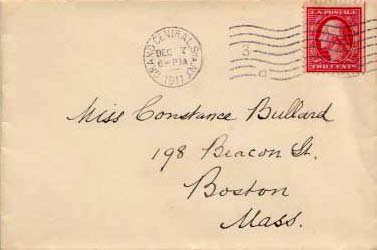 GRAND CENTRAL STA. NY
DEC 7
6-PM
1911
3
U.S. POSTAGE
TWO CENTS
Miss Constance Bullard
198 Beacon St.
Boston
Mass.